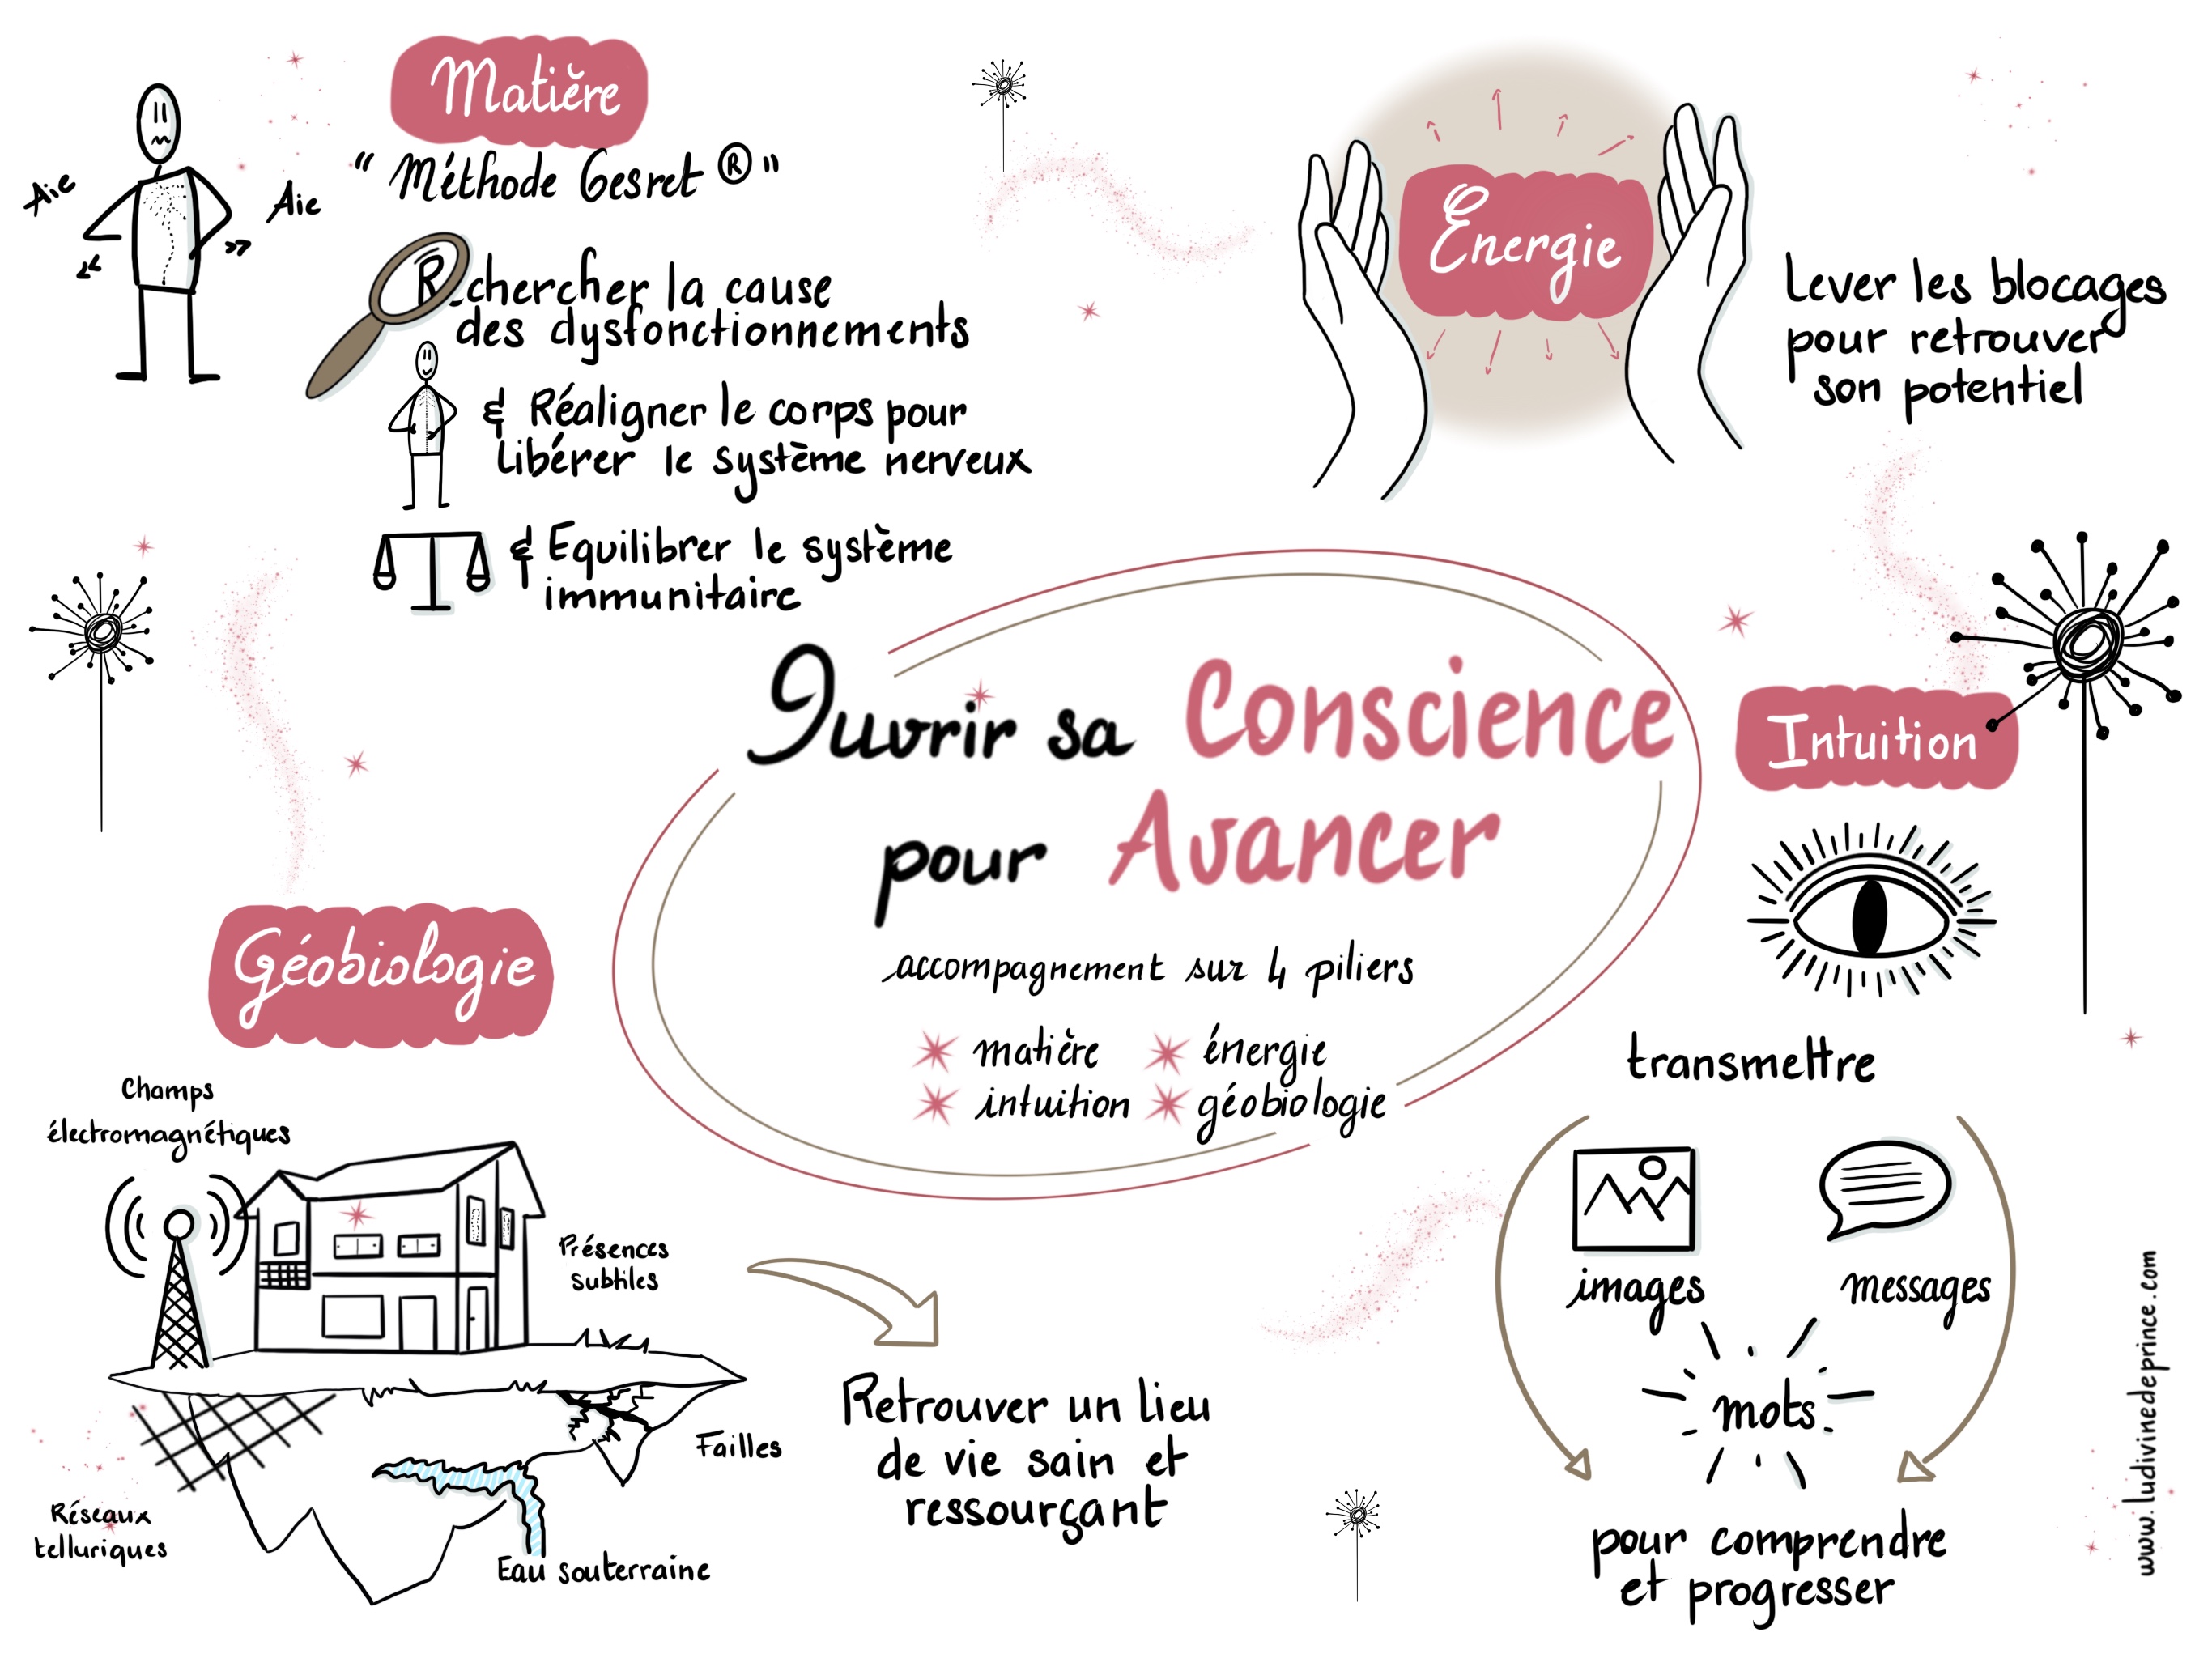 Matière
“ Méthode Gesret ® ”
Aie
Aie
Rechercher la cause
des dysfonctionnements
& Réaligner le corps pour
libérer le système nerveux
& Equilibrer le système
immunitaire
Énergie
Lever les blocages
pour retrouver
son potentiel
Ouvrir sa Conscience
pour Avancer
accompagnement sur 4 piliers
matière énergie
intuition géobiologie
Intuition
transmettre
images messages
mots
pour comprendre
et progresser
Géobiologie
Champs
électromagnétiques
Présences
subtiles
Failles
Réseaux
telluriques
Eau souterraine
Retrouver un lieu
de vie sain et
ressourçant
www.ludivinedeprince.com